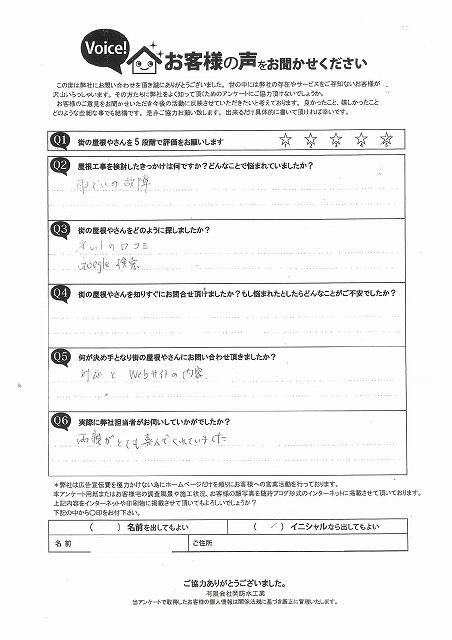 Voice! お客様の声をお聞かせください
この度は弊社にお問い合わせを頂き誠にありがとうございます。世の中には弊社の存在やサービスをご存知ないお客様が
沢山いらっしゃいます。その方たちに弊社をよく知って頂くためのアンケートにご協力頂けないでしょうか。
お客様のご意見をお聞かせいただき今後の活動に反映させていただきたいと考えております。良かったこと、嬉しかったこと
どのような些細な事でも結構です。是非ご協力お願い致します。出来るだけ具体的に書いて頂ければ幸いです。
Q1 街の屋根やさんを5段階で評価をお願いします ☆ ☆ ☆ ☆ ☆
Q2 屋根工事を検討したきっかけは何ですか？どんなことで悩まれていましたか？
雨どいの故障
Q3 街の屋根やさんをどのように探しましたか？
ネットの口コミ
Google 検索
Q4 街の屋根やさんを知りすぐにお問合せ頂けましたか？もし悩まれたとしたらどんなことがご不安でしたか？
Q5 何が決め手となり街の屋根やさんにお問い合わせ頂きましたか？
対応と Webサイトの内容
Q6 実際に弊社担当者がお伺いしていかがでしたか？
両親がとても喜んでくれていました
＊弊社は広告宣伝費を極力かけない為にホームページだけを頼りにお客様への営業活動を行っております。
本アンケート用紙またはお客様宅の調査風景や施工状況、お客様の顔写真を随時ブログ形式のインターネットに掲載させて頂いております。
上記内容をインターネットや印刷物に掲載させて頂いてもよろしいでしょうか？
下記の中から〇印をお付下さい。
（　　）名前を出してもよい （　／　）イニシャルなら出してもよい
名前 ご住所
ご協力ありがとうございました。
有限会社関防水工業
当アンケートで取得したお客様の個人情報は関係法規に基づき厳正に管理いたします。